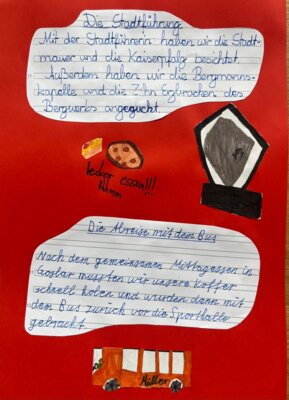 Die Stadtführung
Mit der Stadtführerin haben wir die Stadt-
mauer und die Kaiserpfalz besichtet.
Außerdem haben wir die Bergmanns-
kapelle und die Erzbrocken des
Bergwerks angeguckt.
lecker essen!!!
Die Abreise mit dem Bus
Nach dem gemeinsamen Mittagessen in
Goslar mussten wir unsere Koffer
schnell holen und wurden dann mit
dem Bus zurück vor die Sporthalle
gebracht.
Müller